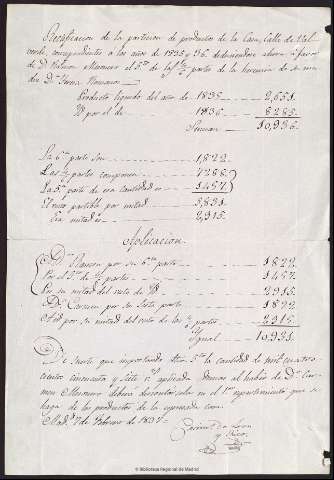 Rectificacion de la particion de productos de la Casa, Calle de Val-
verde, correspondientes á los años de 1835 y 36, deduciendose ahora á favor
de Dn. Ramon Mesonero el 5to. de las 2/3 partes de la herencia de su ma-
dre Da. Teresa Romano
Producto liquido del año de 1835 2,651.
Yd por el de 1836 8285.
Suman 10,936.
La 6a. parte son 1,822.
Las 2/3 partes componen 7288.
La 5a. parte de esa cantidad es 1457.
El resto partible por mitad 5,831.
Esa mitad es 2,915.
Aplicacion
Dn. Ramon por su 6a. parte 1822.
Por el 5o. de 2/3 partes 1457.
Por su mitad del resto de Yd 2915.
Da. Carmen por su sesta parte 1822
Yd por su mitad del resto de las 2/3 partes 2915.
Ygual 10,931.
De suerte que importando este 5to. la cantidad de mil cuatro
cientos cincuenta y siete rs. aplicada demas al haber de Da. Car-
men Mesonero debera descontarsele en el 1er. repartimiento que se
haga de los productos de la espresada casa.
Madrid de Febrero de 1837.
© Biblioteca Regional de Madrid